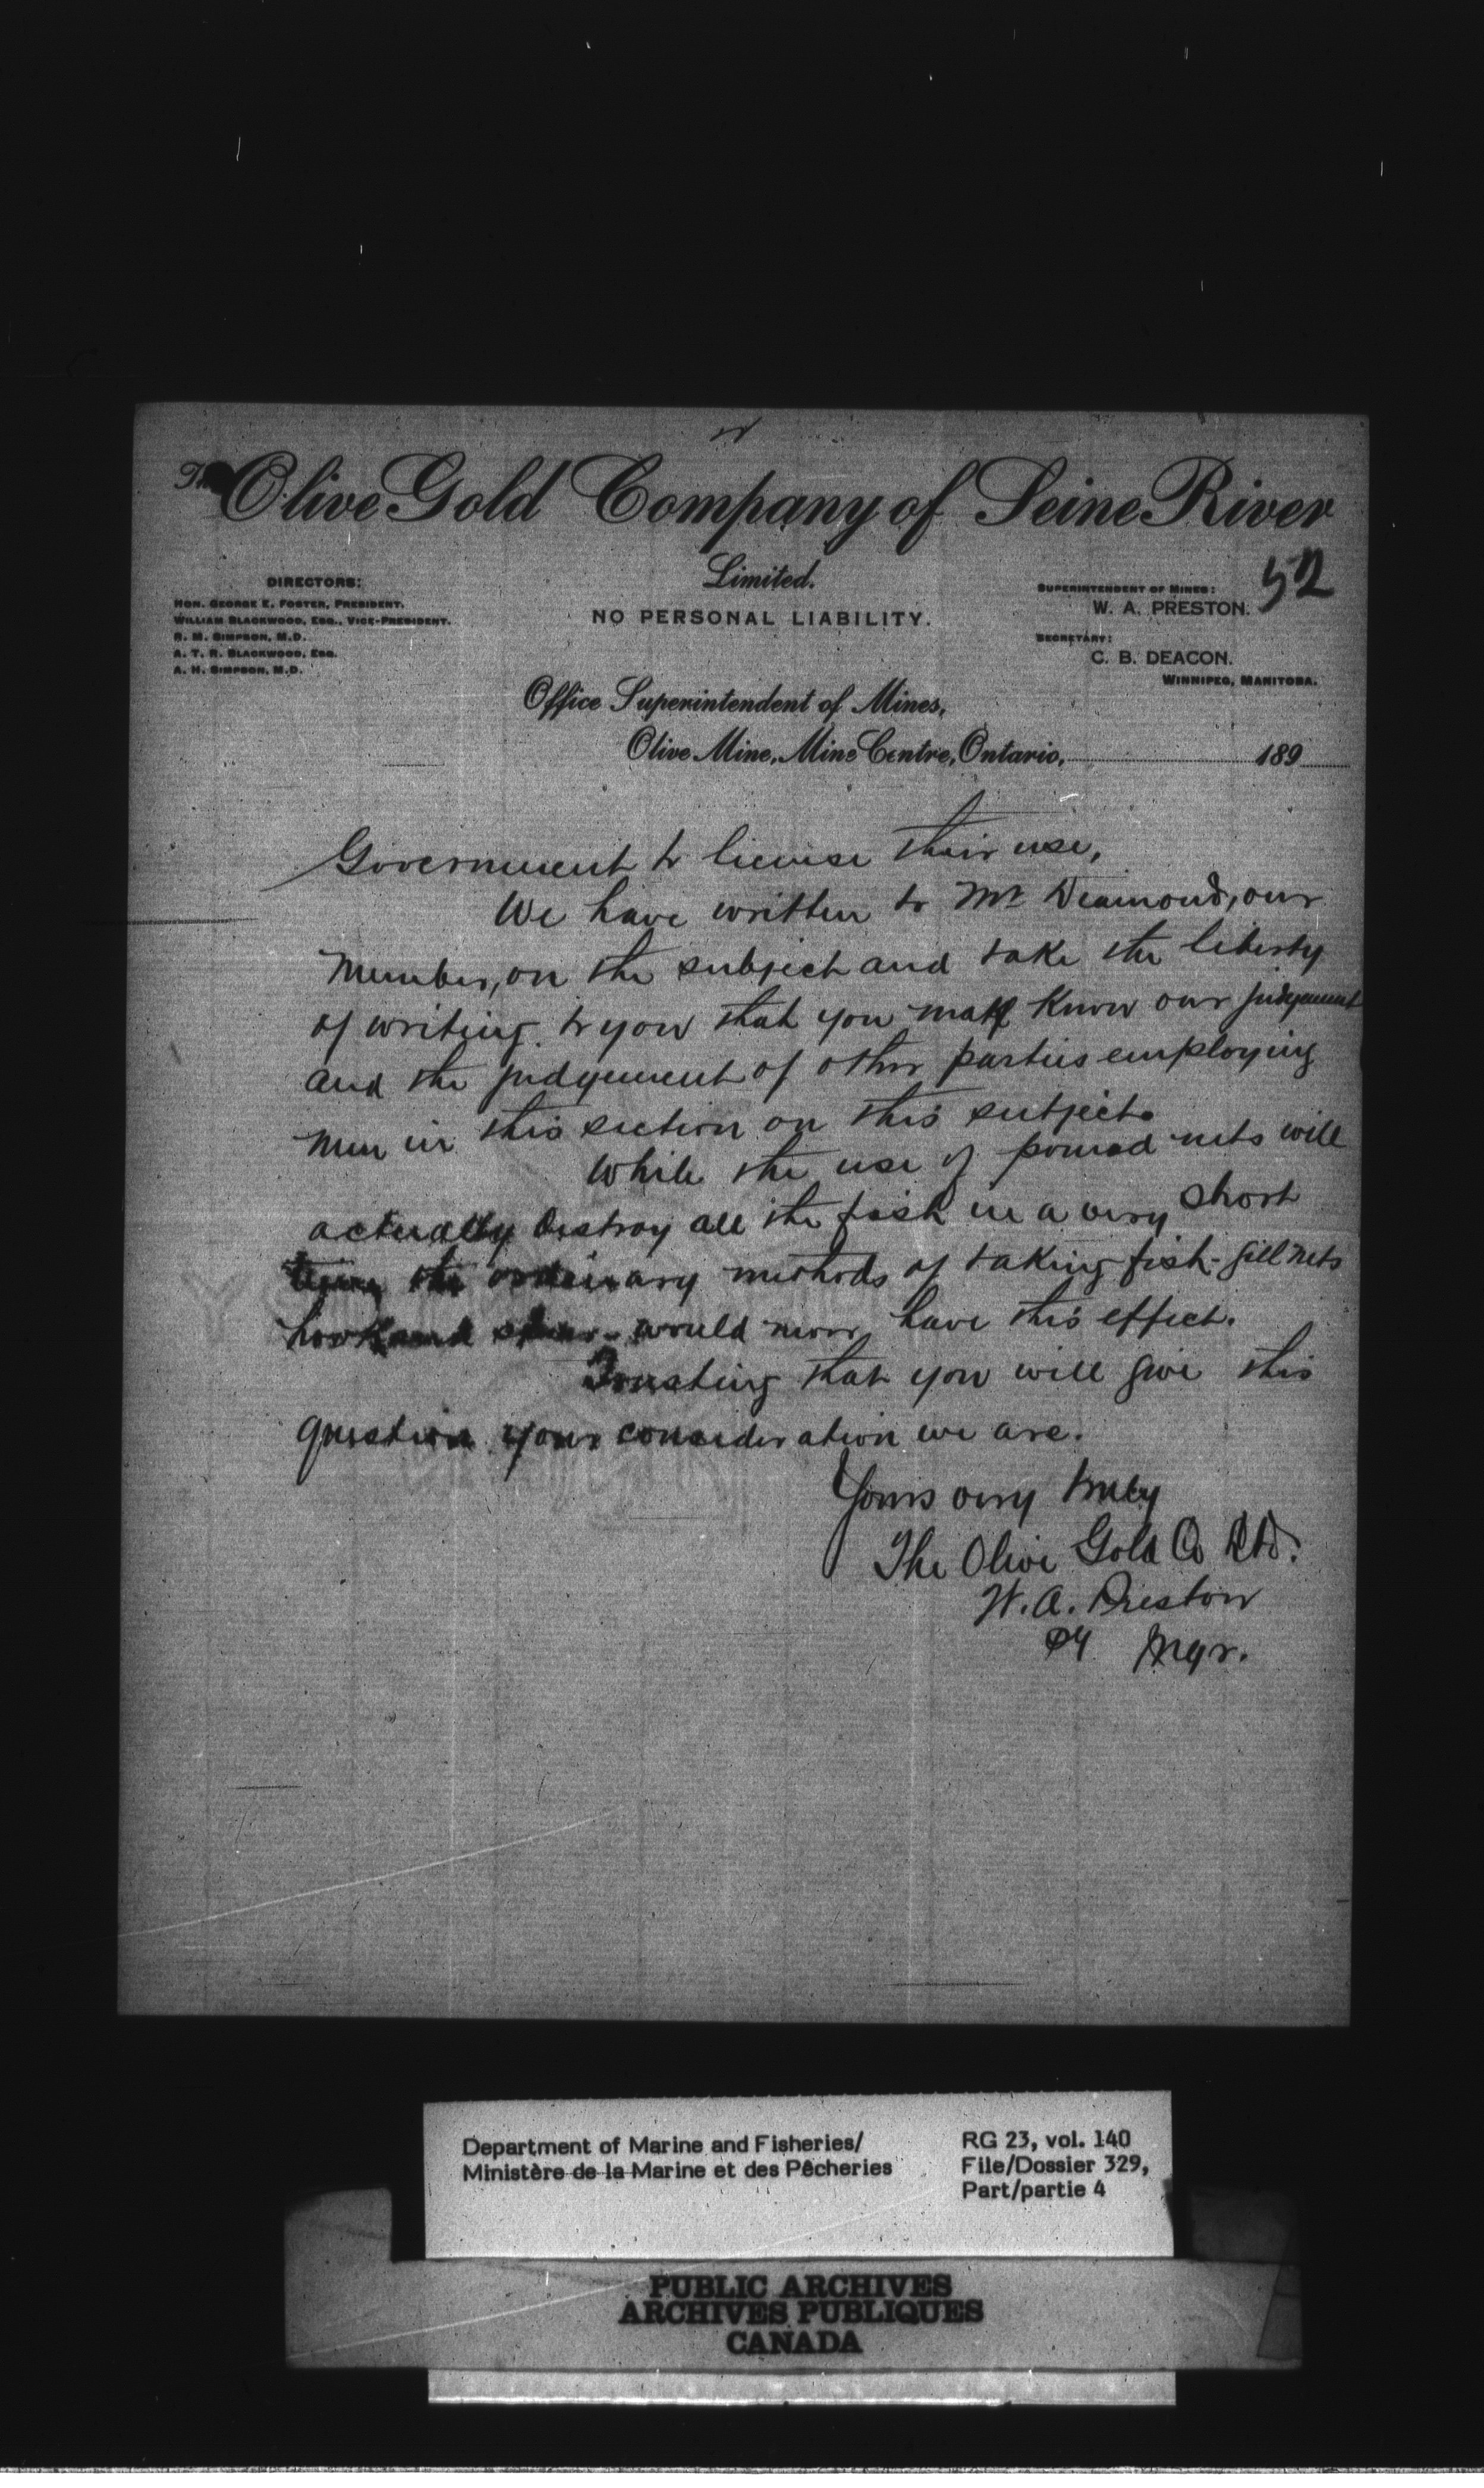 The Olive Gold Company of Seine River
Limited.
NO PERSONAL LIABILITY.
52
DIRECTORS:
HON. GEORGE E. FOSTER, PRESIDENT.
WILLIAM BLACKWOOD, ESQ., VICE-PRESIDENT.
R. M. SIMPSON, M.D.
A. T. R. BLACKWOOD, ESQ.
A. H. SIMPSON, M.D.
SUPERINTENDENT OF MINES:
W. A. PRESTON.
SECRETARY:
C. B. DEACON.
WINNIPEG, MANITOBA.
Office Superintendent of Mines,
Olive Mine, Mine Centre, Ontario, 189
Government to license their use,
We have written to Mr Diamond, our
Member, on the subject and take the liberty
of writing to you that you may know our judgement
and the judgement of other parties employing
men in this section on this subject.
While the use of pound nets will
actually destroy all the fish in a very short
time, the ordinary methods of taking fish - gill nets
hook and - would never have this effect.
Trusting that you will give this
question your consideration we are.
Yours very truly
The Olive Gold Co Ltd.
W. A. Preston
Mgr.
Department of Marine and Fisheries/
Ministère de la Marine et des Pêcheries
RG 23, vol. 140
File/Dossier 329,
Part/partie 4
PUBLIC ARCHIVES
ARCHIVES PUBLIQUES
CANADA